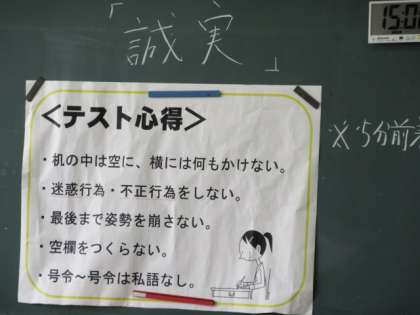 「誠実」
15:0
<テスト心得>
・机の中は空に、横には何もかけない。
・迷惑行為・不正行為をしない。
・最後まで姿勢を崩さない。
・空欄をつくらない。
・号令～号令は私語なし。
※5分前